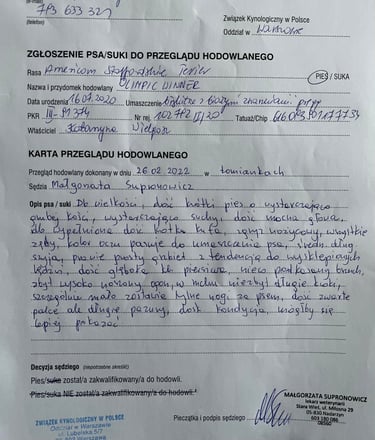 793 633 321
(telefon)
Związek Kynologiczny w Polsce
Oddział w Warszawie
ZGŁOSZENIE PSA/SUKI DO PRZEGLĄDU HODOWLANEGO
Rasa American Staffordshire Terier
PIES / SUKA
Nazwa i przydomek hodowlany OLIMPIC WINNER
Data urodzenia 16.07.2020 Umaszczenie z białymi znaczeniami
PKR III- Nr rej. Tatuaż/Chip
Właściciel Katarzyna
KARTA PRZEGLĄDU HODOWLANEGO
Przegląd hodowlany dokonany w dniu 26.02.2022 w Łomiankach
Sędzia Małgorzata Supronowicz
Opis psa / suki Db wielkości, dość krótki pies o wystarczająco
grubej kości, wystarczająco suchy, dość mocna głowa,
db wypełniona dość krótka kufa, zgryz nożycowy, wszystkie
zęby, kolor oczu pasuje do umaszczenia psa, średn. dług.
szyja, prawie prosty grzbiet z tendencją do wysklepionych
lędźwi, dość głęboka kl. piersiowa, nieco podkasany brzuch,
zbyt wysoko noszony ogon, w ruchu niezbyt długie kroki,
szczególnie mało zostawia tylne nogi za psem, dość zwarte
palce ale długie pazury, dość kondycja, mógłby się
lepiej pokazać
Decyzja sędziego (niepotrzebne skreślić)
Pies/suka został/a zakwalifikowany/a do hodowli.
Pies/suka NIE został/a zakwalifikowany/a do hodowli.
ZWIĄZEK KYNOLOGICZNY W POLSCE
Oddział w Warszawie
ul. Lubelska 5/7
Pieczątka i podpis sędziego
MAŁGORZATA SUPRONOWICZ
lekarz weterynarii
Stara Wieś, ul. Miłosna 29
05-830 Nadarzyn